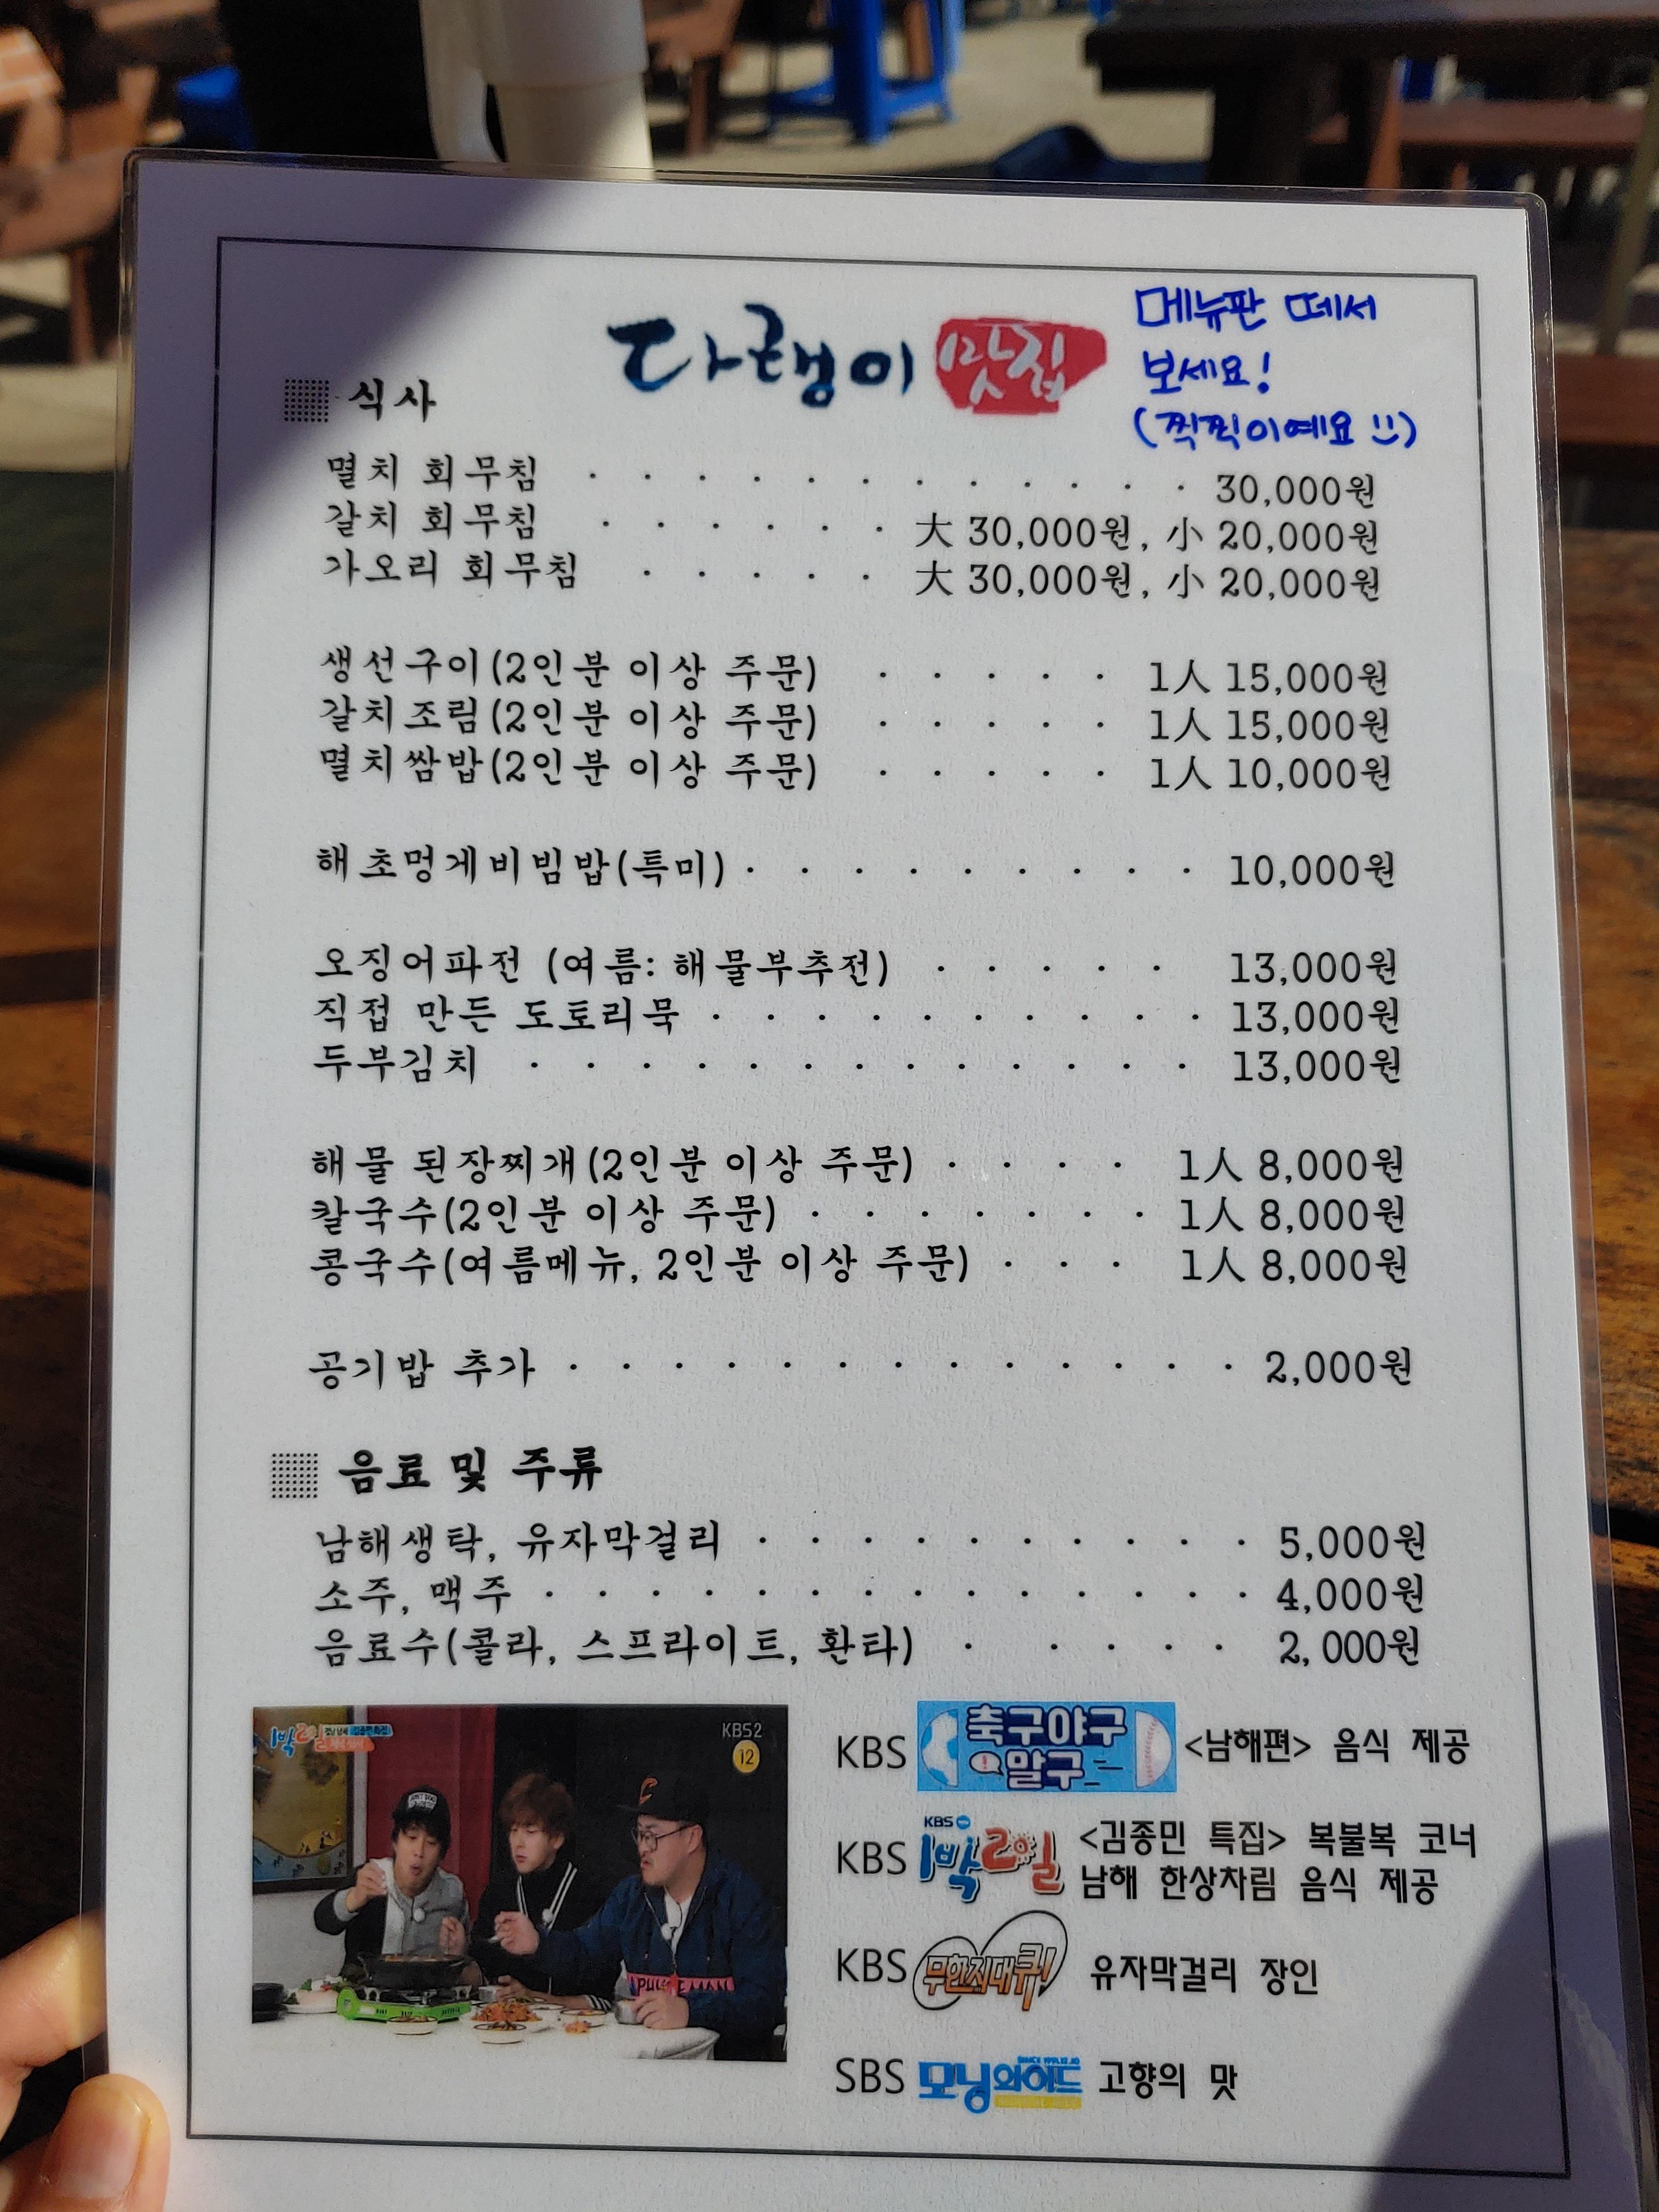 다랭이 맛집
메뉴판 떼서
보세요!
(찍찍이예요 :))
식사
멸치 회무침 · · · · · · · · · · · · 30,000원
갈치 회무침 · · · · · · 大 30,000원, 小 20,000원
가오리 회무침 · · · · · 大 30,000원, 小 20,000원
생선구이(2인분 이상 주문) · · · · · 1人 15,000원
갈치조림(2인분 이상 주문) · · · · · 1人 15,000원
멸치쌈밥(2인분 이상 주문) · · · · · 1人 10,000원
해초멍게비빔밥(특미) · · · · · · · · · 10,000원
오징어파전 (여름: 해물부추전) · · · · · 13,000원
직접 만든 도토리묵 · · · · · · · · · · 13,000원
두부김치 · · · · · · · · · · · · · 13,000원
해물 된장찌개(2인분 이상 주문) · · · · 1人 8,000원
칼국수(2인분 이상 주문) · · · · · · · 1人 8,000원
콩국수(여름메뉴, 2인분 이상 주문) · · · 1人 8,000원
공기밥 추가 · · · · · · · · · · · · · 2,000원
음료 및 주류
남해생탁, 유자막걸리 · · · · · · · · · · 5,000원
소주, 맥주 · · · · · · · · · · · · · · 4,000원
음료수(콜라, 스프라이트, 환타) · · · · · 2,000원
1박2일
KBS2
12
KBS 축구야구말구 <남해편> 음식 제공
KBS KBS 1박2일 <김종민 특집> 복불복 코너
남해 한상차림 음식 제공
KBS 무한지대큐! 유자막걸리 장인
SBS 모닝와이드 고향의 맛